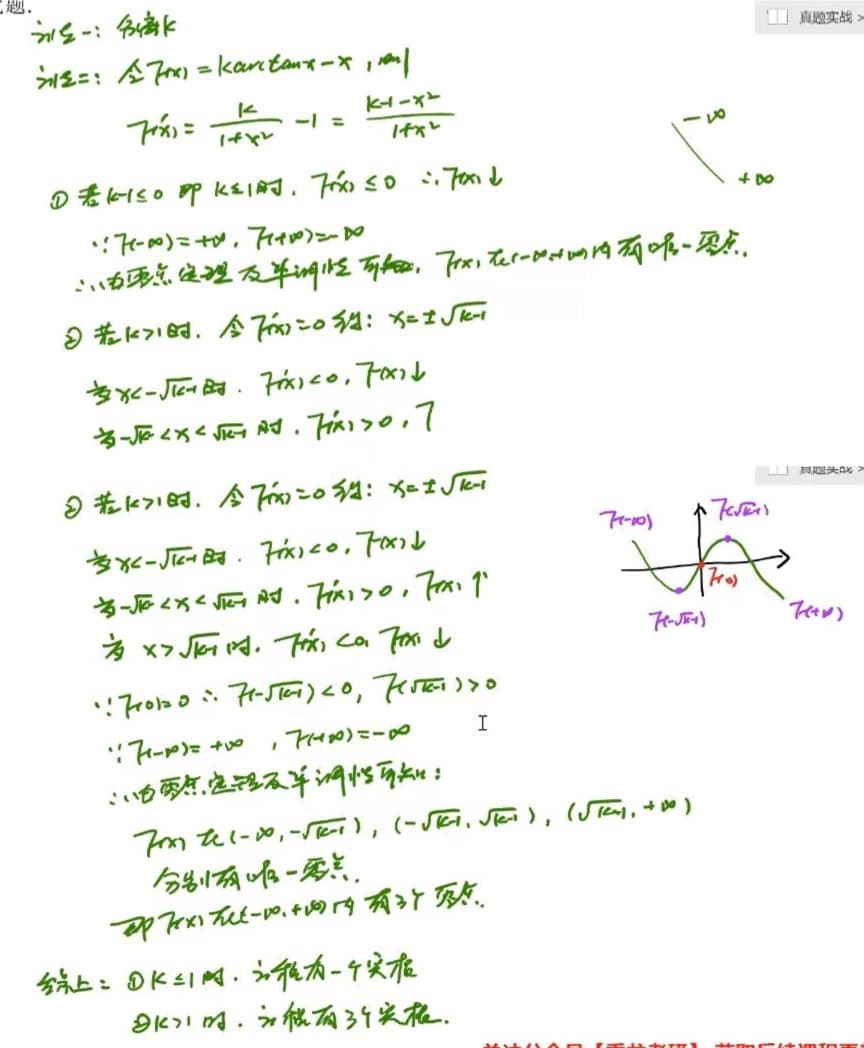 题.
真题实战 >
方法一: 分离k
方法二: 令F(x)=karctanx-x, 则
F'(x)= k/(1+x²) -1 = (k-1-x²)/(1+x²)
-∞
+∞
① 若k-1≤0 即k≤1时. F'(x)≤0 ∴F(x)↓
∵F(-∞)=+∞, F(+∞)=-∞
∴由零点定理及单调性可知, F(x)在(-∞,+∞)内有唯一零点.
② 若k>1时. 令F'(x)=0得: x=±√(k-1)
当x<-√(k-1)时. F'(x)<0, F(x)↓
当-√(k-1)<x<√(k-1)时. F'(x)>0, F
真题实战 >
② 若k>1时. 令F'(x)=0得: x=±√(k-1)
F(-∞)
F(√(k-1))
当x<-√(k-1)时. F'(x)<0, F(x)↓
F(0)
当-√(k-1)<x<√(k-1)时. F'(x)>0, F(x)↑
F(-√(k-1))
F(+∞)
当 x>√(k-1)时. F'(x)<0, F(x)↓
∵F(0)=0 ∴F(-√(k-1))<0, F(√(k-1))>0
∵F(-∞)=+∞, F(+∞)=-∞
∴由零点定理及单调性可知:
F(x)在(-∞,-√(k-1)), (-√(k-1),√(k-1)), (√(k-1),+∞)
分别有唯一零点.
即F(x)在(-∞,+∞)内有3个零点.
综上: ①k≤1时. 方程有一个实根
②k>1时. 方程有3个实根.